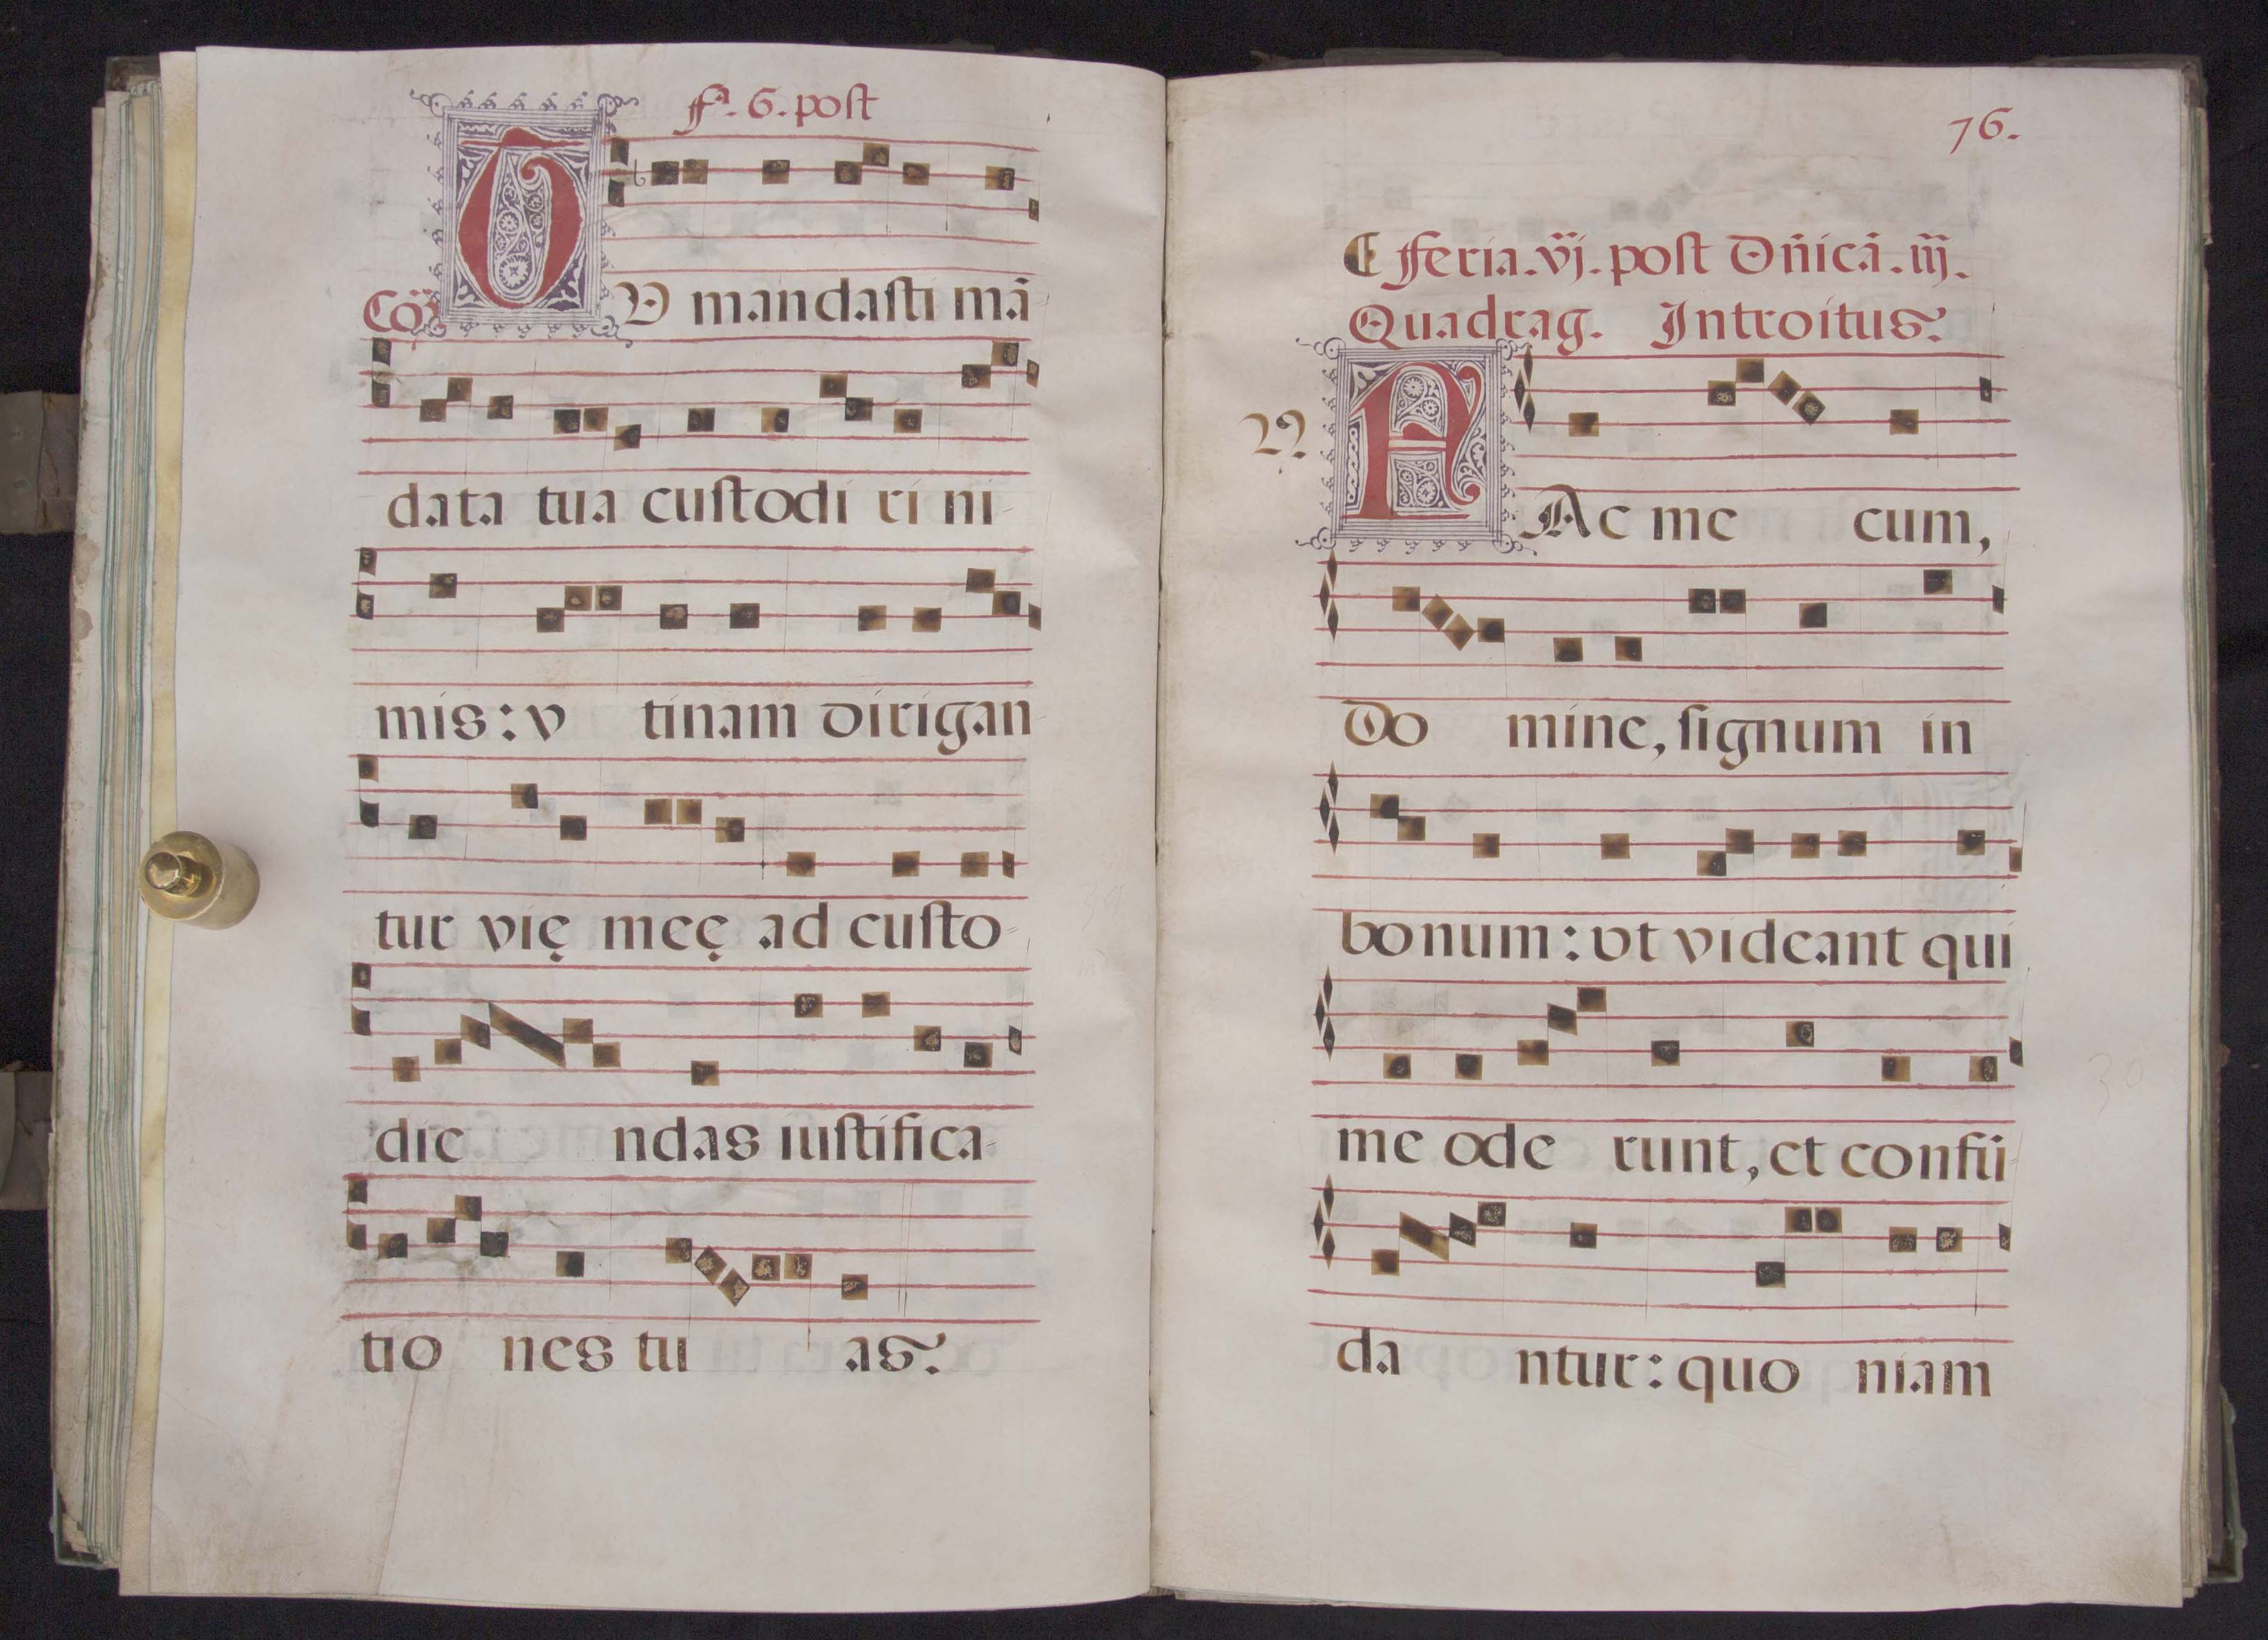 F. 6. post
Cõ. TV mandasti mã
data tua custodi ri ni
mis: v tinam dirigan
tur vię meę ad custo
die ndas iustifica
tio nes tu as.
76.
feria. vj. post Dñicã. iij.
Quadrag. Introitus.
FAc me cum,
Do mine, signum in
bonum: vt videant qui
me ode runt, et confũ
da ntur: quo niam